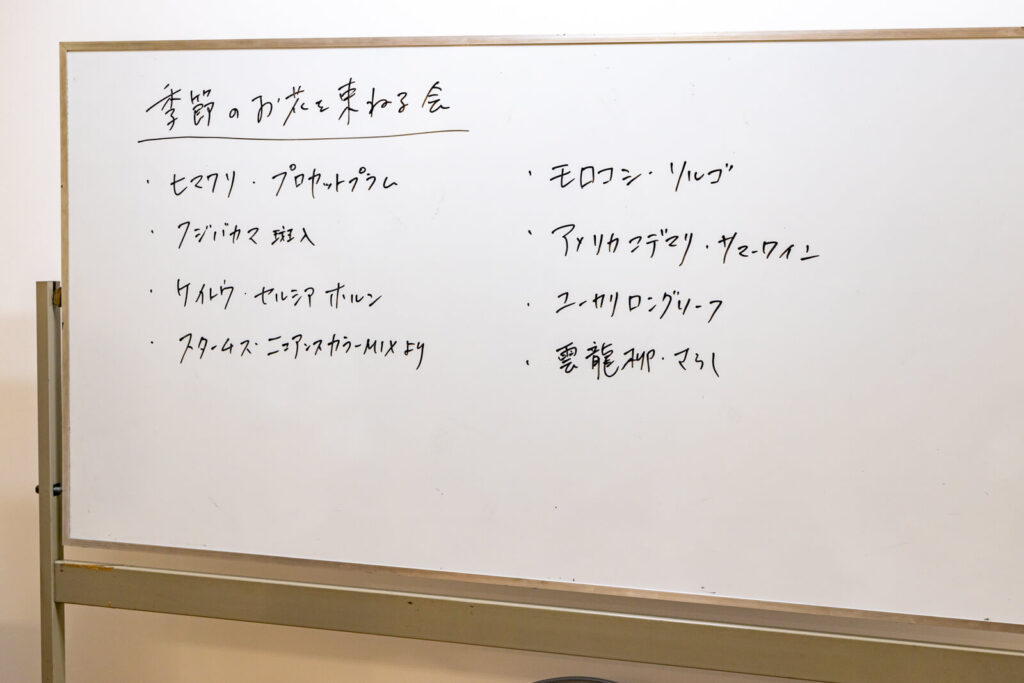 季節のお花を束ねる会
・ヒマワリ・プロカットプラム
・フジバカマ 斑入
・ケイトウ・セルシア ホルン
・スタームス・ニュアンスカラーMIXより
・モロコシ・ソルゴ
・アメリカコデマリ・サマーワイン
・ユーカリ ロングリーフ
・雲龍柳・さらし